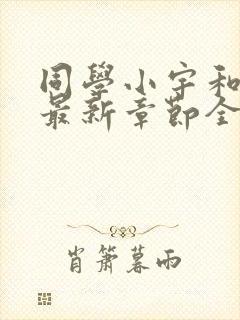 同學小宇和
最新章節全
肖簫暮雨